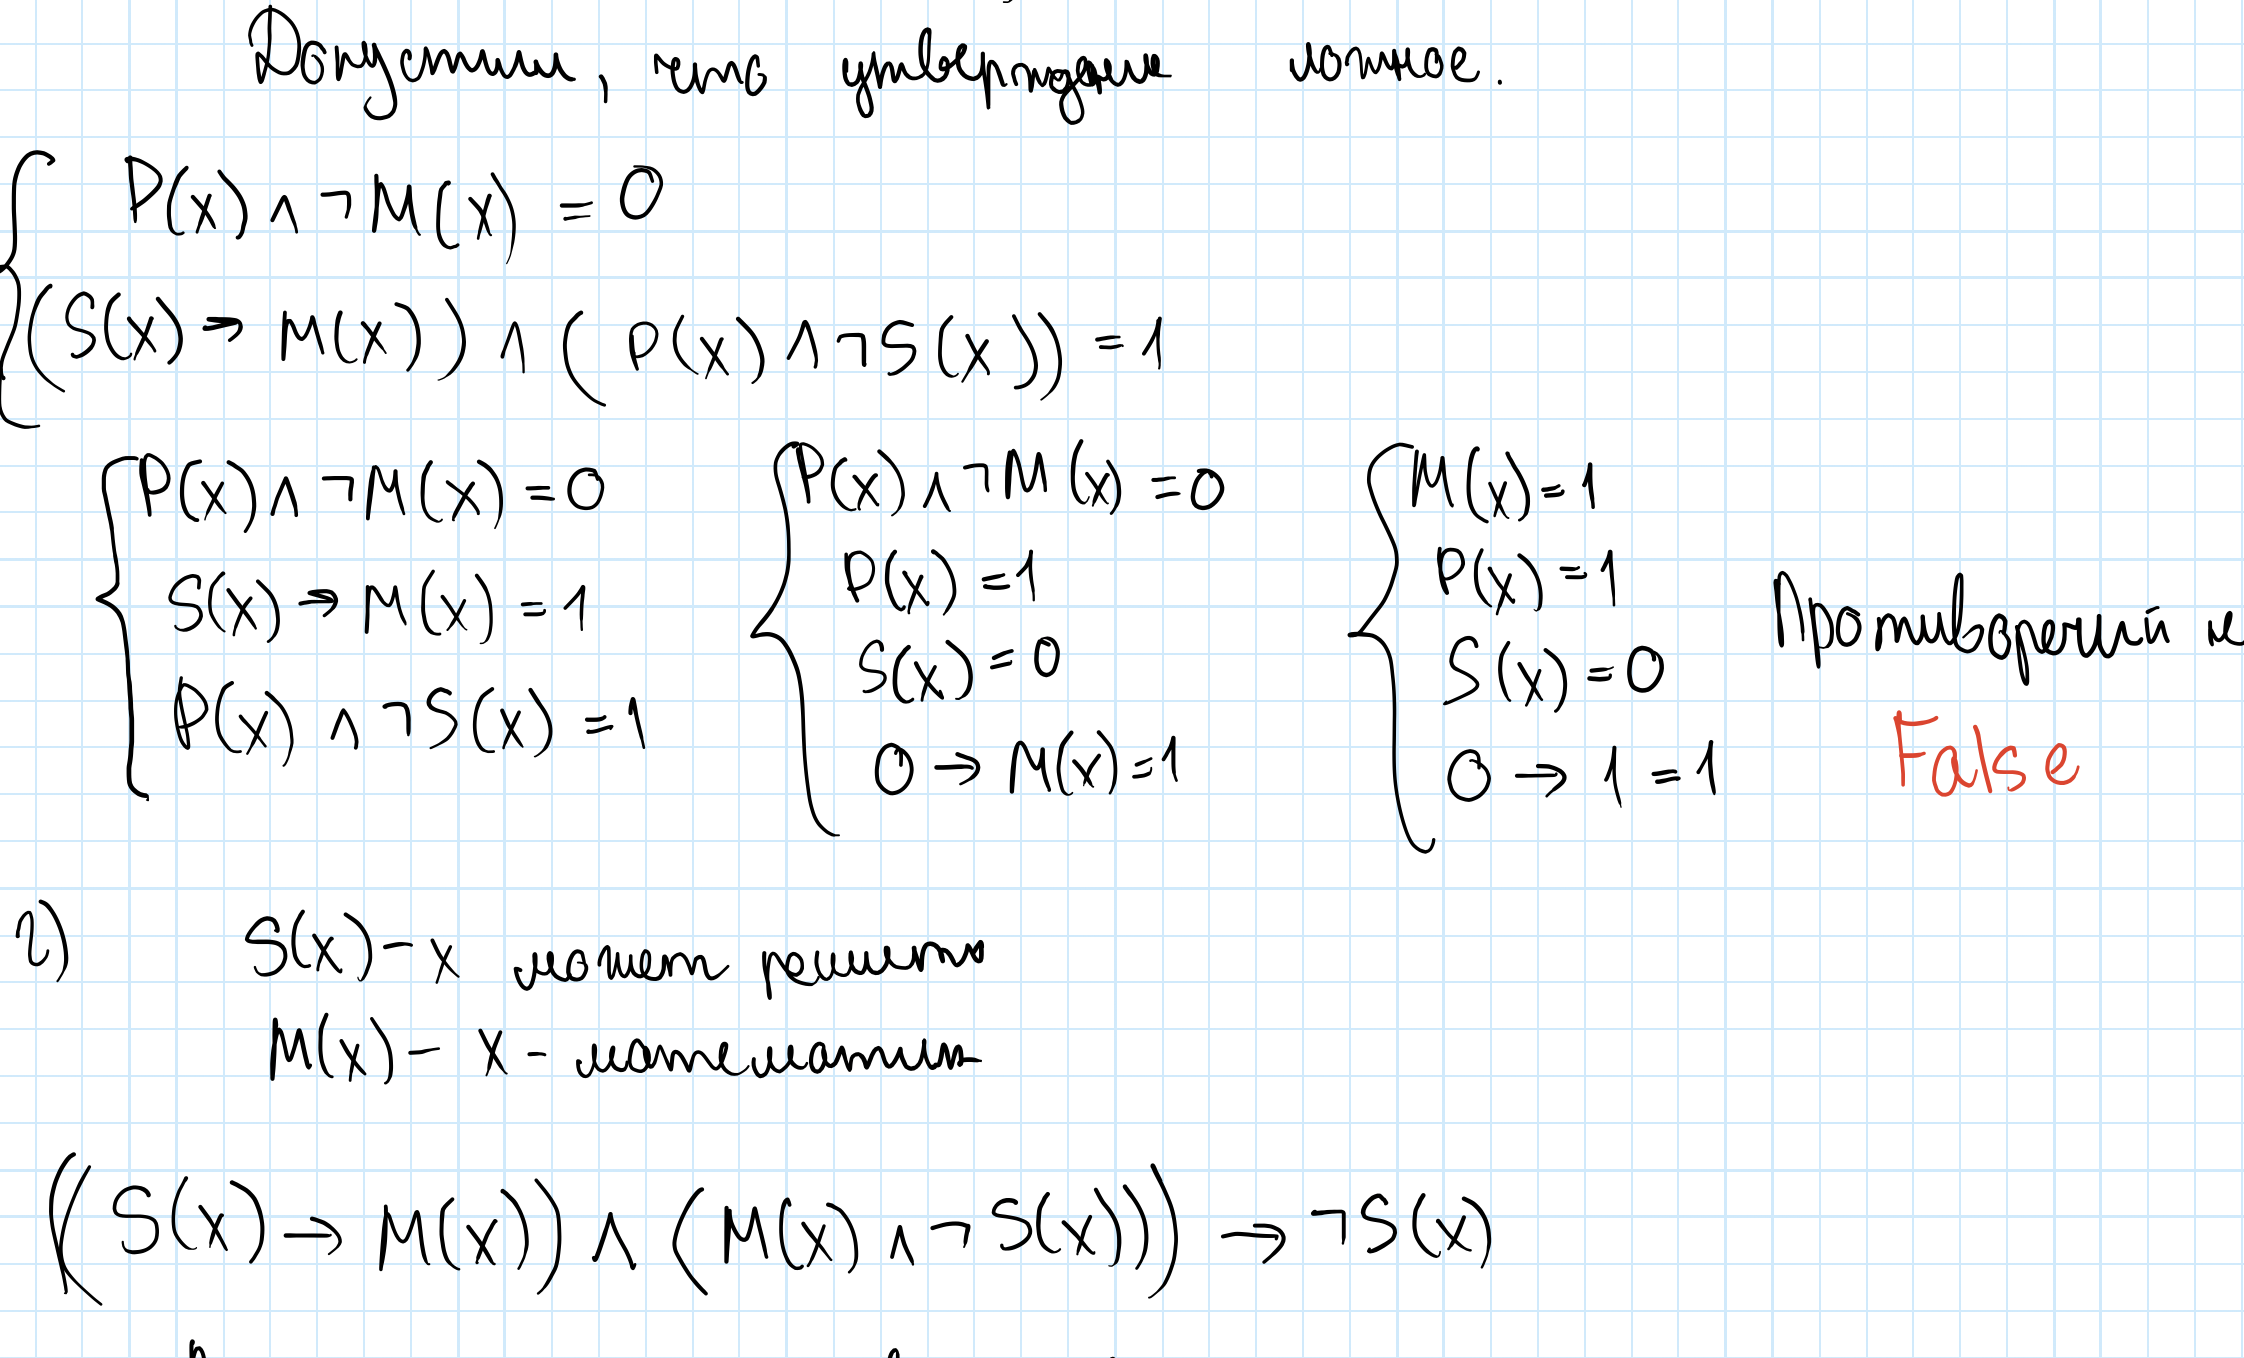 Допустим, что утверждение ложное.
P(x) ∧ ¬M(x) = 0
(S(x) → M(x)) ∧ (P(x) ∧ ¬S(x)) = 1
P(x) ∧ ¬M(x) = 0
S(x) → M(x) = 1
P(x) ∧ ¬S(x) = 1
P(x) ∧ ¬M(x) = 0
P(x) = 1
S(x) = 0
0 → M(x) = 1
M(x) = 1
P(x) = 1
S(x) = 0
0 → 1 = 1
Противоречий н
False
2) S(x) - x может решить
M(x) - x - математик
((S(x) → M(x)) ∧ (M(x) ∧ ¬S(x))) → ¬S(x)